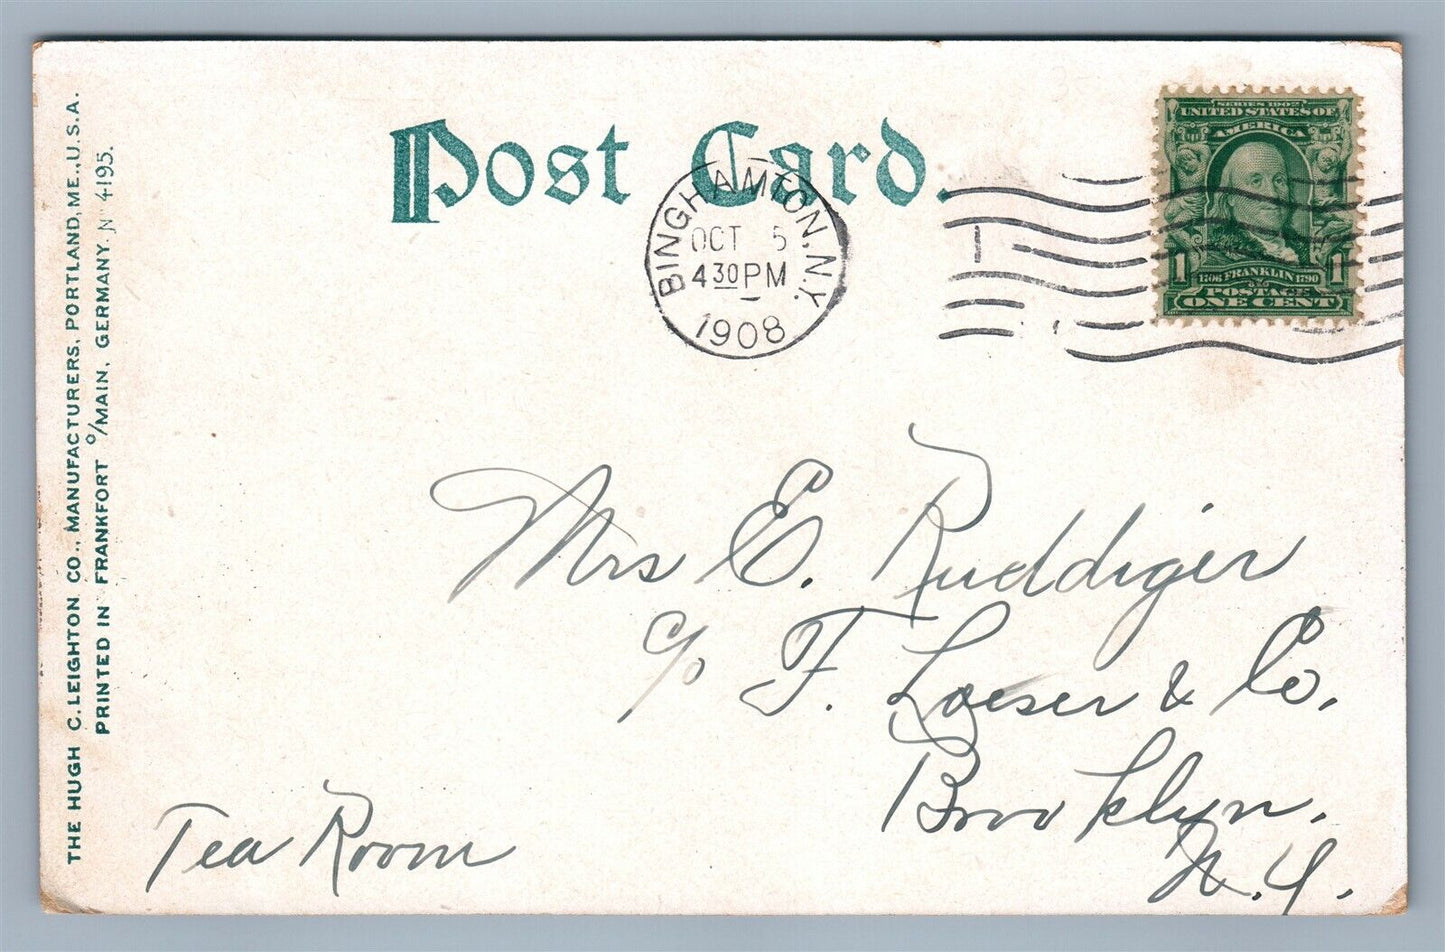 Post Card.
BINGHAMTON, N.Y.
OCT 5
4 30 PM
1908
SERIES 1902
UNITED STATES OF
AMERICA
1 1706 FRANKLIN 1790 1
POSTAGE
ONE CENT
THE HUGH C. LEIGHTON CO., MANUFACTURERS, PORTLAND, ME., U.S.A.
PRINTED IN FRANKFORT O/MAIN, GERMANY. No 4195.
Mrs E. Ruddiger
c/o F. Loeser & Co.
Brooklyn.
N.Y.
Tea Room